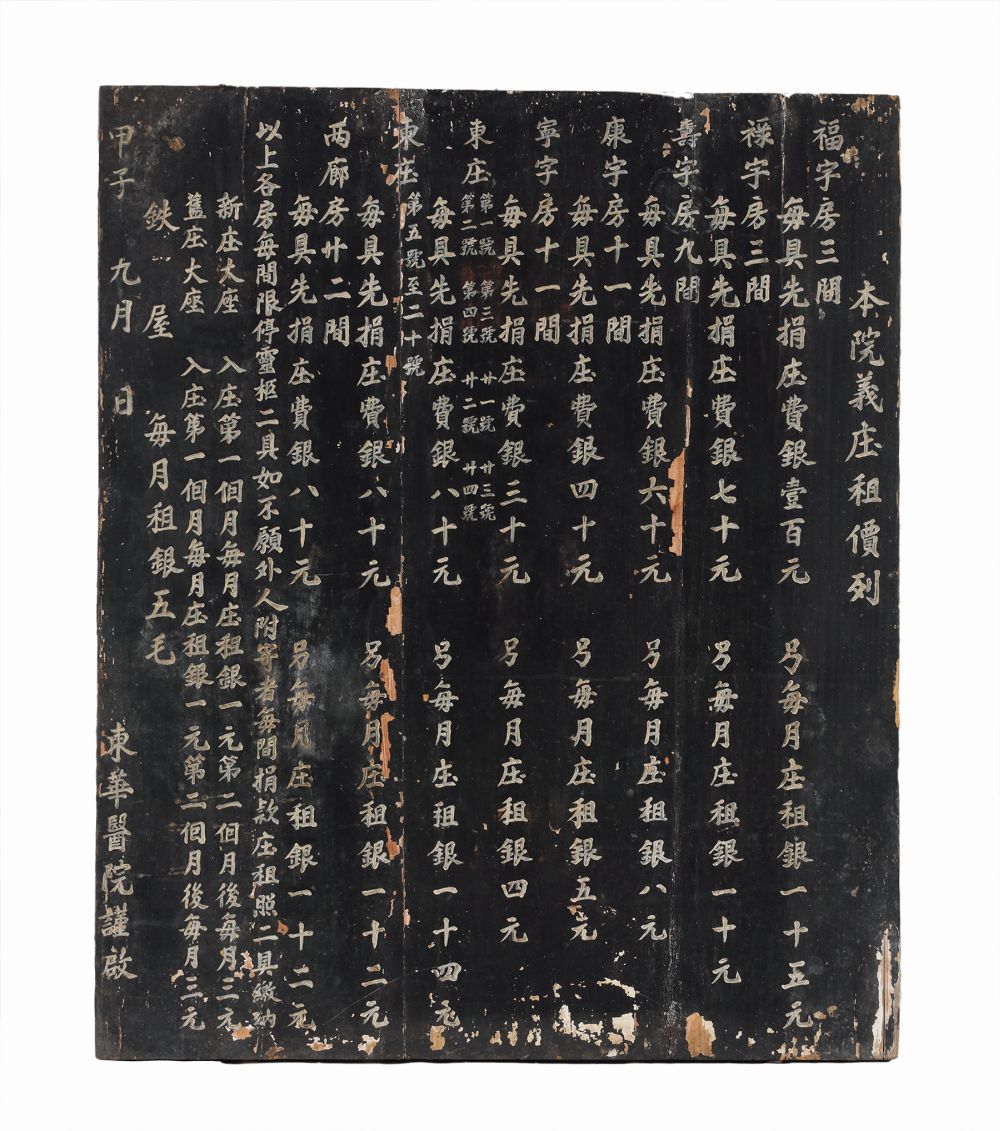 本院義庄租價列
福字房三間
每具先捐庄費銀壹百元 另每月庄租銀一十五元
祿字房三間
每具先捐庄費銀七十元 另每月庄租銀一十元
壽字房九間
每具先捐庄費銀六十元 另每月庄租銀八元
康字房十一間
每具先捐庄費銀四十元 另每月庄租銀五元
寧字房十一間
每具先捐庄費銀三十元 另每月庄租銀四元
東庄 第一號 第三號 廿一號 廿三號
第二號 第四號 廿二號 廿四號
每具先捐庄費銀八十元 另每月庄租銀一十四元
東庄第五號至二十號
每具先捐庄費銀八十元 另每月庄租銀一十二元
两廊房廿二間
每具先捐庄費銀八十元 另每月庄租銀一十二元
以上各房每間限停靈柩二具如不願外人附寄者每間捐欵庄租照二具繳納
新庄大座 入庄第一個月每月庄租銀一元第二個月後每月三元
舊庄大座 入庄第一個月每月庄租銀一元第二個月後每月三元
鉄屋 每月租銀五毛
甲子 九月 日 東華醫院謹啟